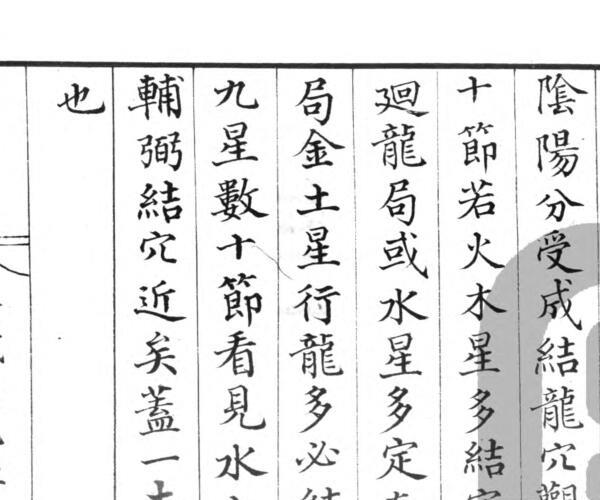 陰陽分受成結龍穴觀
十節若火木星多結
廻龍局或水星多定
局金土星行龍多必結
九星數十節看見水
輔弼結穴近矣蓋一
也